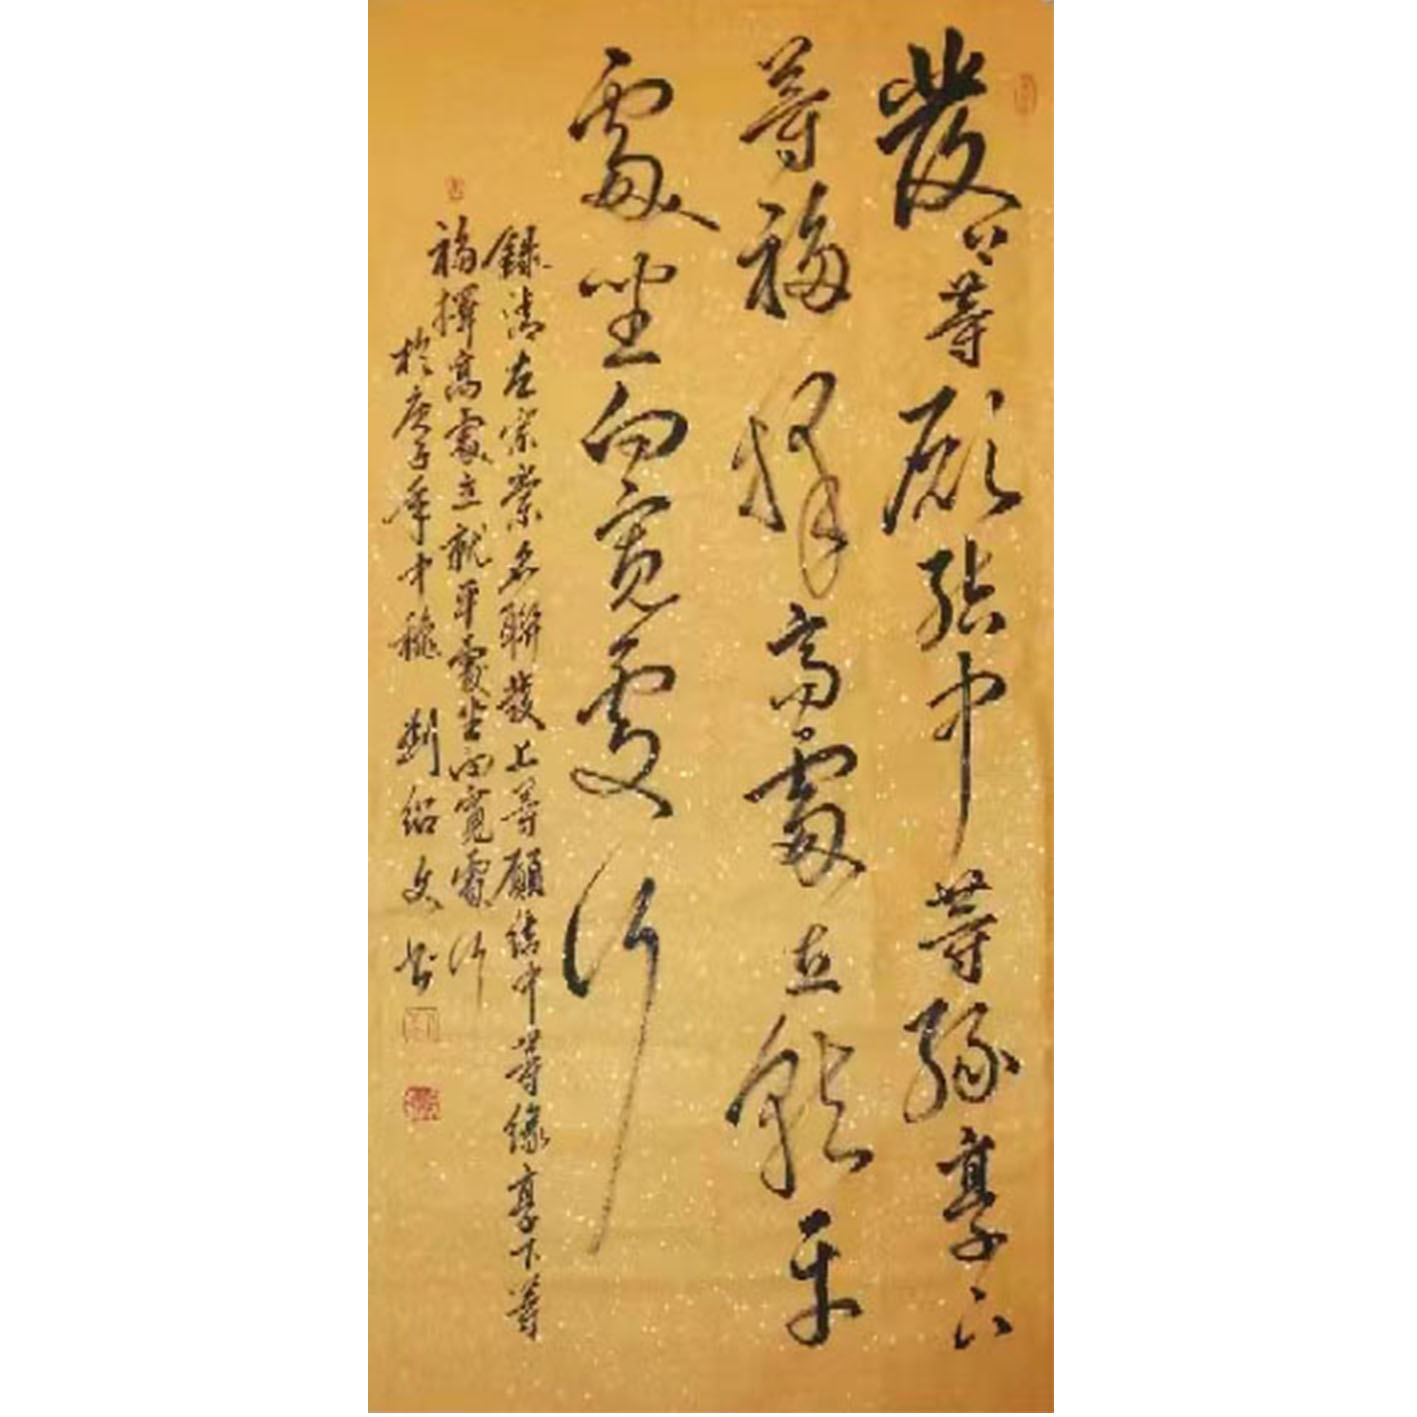 發上等願結中等緣享下
等福擇高處立就平
處坐向寬處行
錄清左宗棠名聯發上等願結中等緣享下等
福擇高處立就平處坐向寬處行
於庚子年中秋 劉紹文書